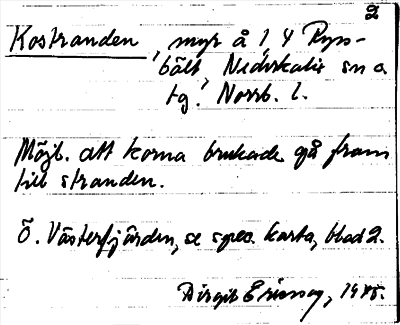 2
Kostranden, myr å 1, 4 Rys-
bält, Nederkalix sn o
tg. Norrb. l.
Möjl. att korna brukade gå fram
till stranden.
Ö. Västerfjärden, se spec. karta, blad 2.
Birgit Ericson, 1945.